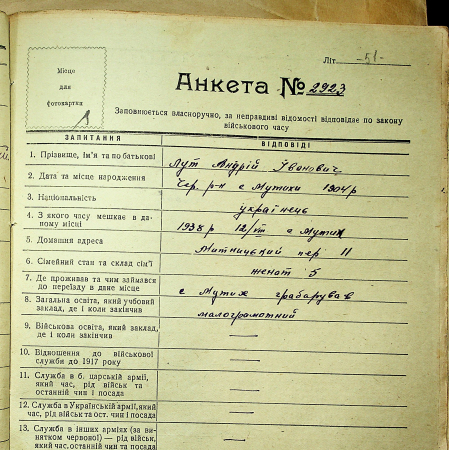 Літ -51-
Місце
для
фотокартки
Анкета № 2923
Заповнюється власноручно, за неправдиві відомості відповідає по закону
військового часу
ЗАПИТАННЯ
ВІДПОВІДІ
1. Прізвище, ім'я та по батькові
Лут Андрій Іванович
2. Дата та місце народження
Чер. р-н с Мутихи 1904 р
3. Національність
українець
4. З якого часу мешкає в даному місці
1938 р 12/VIII с Мутих
5. Домашня адреса
Митницький пер 11
6. Сімейний стан та склад сім'ї
женат 5
7. Де проживав та чим займався
до переїзду в дане місце
с Мутих грабарував
8. Загальна освіта, який учбовий
заклад, де і коли закінчив
малограмотний
9. Військова освіта, який заклад,
де і коли закінчив
—
10. Відношення до військової
служби до 1917 року
—
11. Служба в б. царській армії,
який час, рід військ та
останній чин і посада
—
12. Служба в Українській армії, який
час, рід військ та ост. чин і посада
—
13. Служба в інших арміях (за ви-
нятком червоної) — рід військ,
який час, останній чин та посада
—